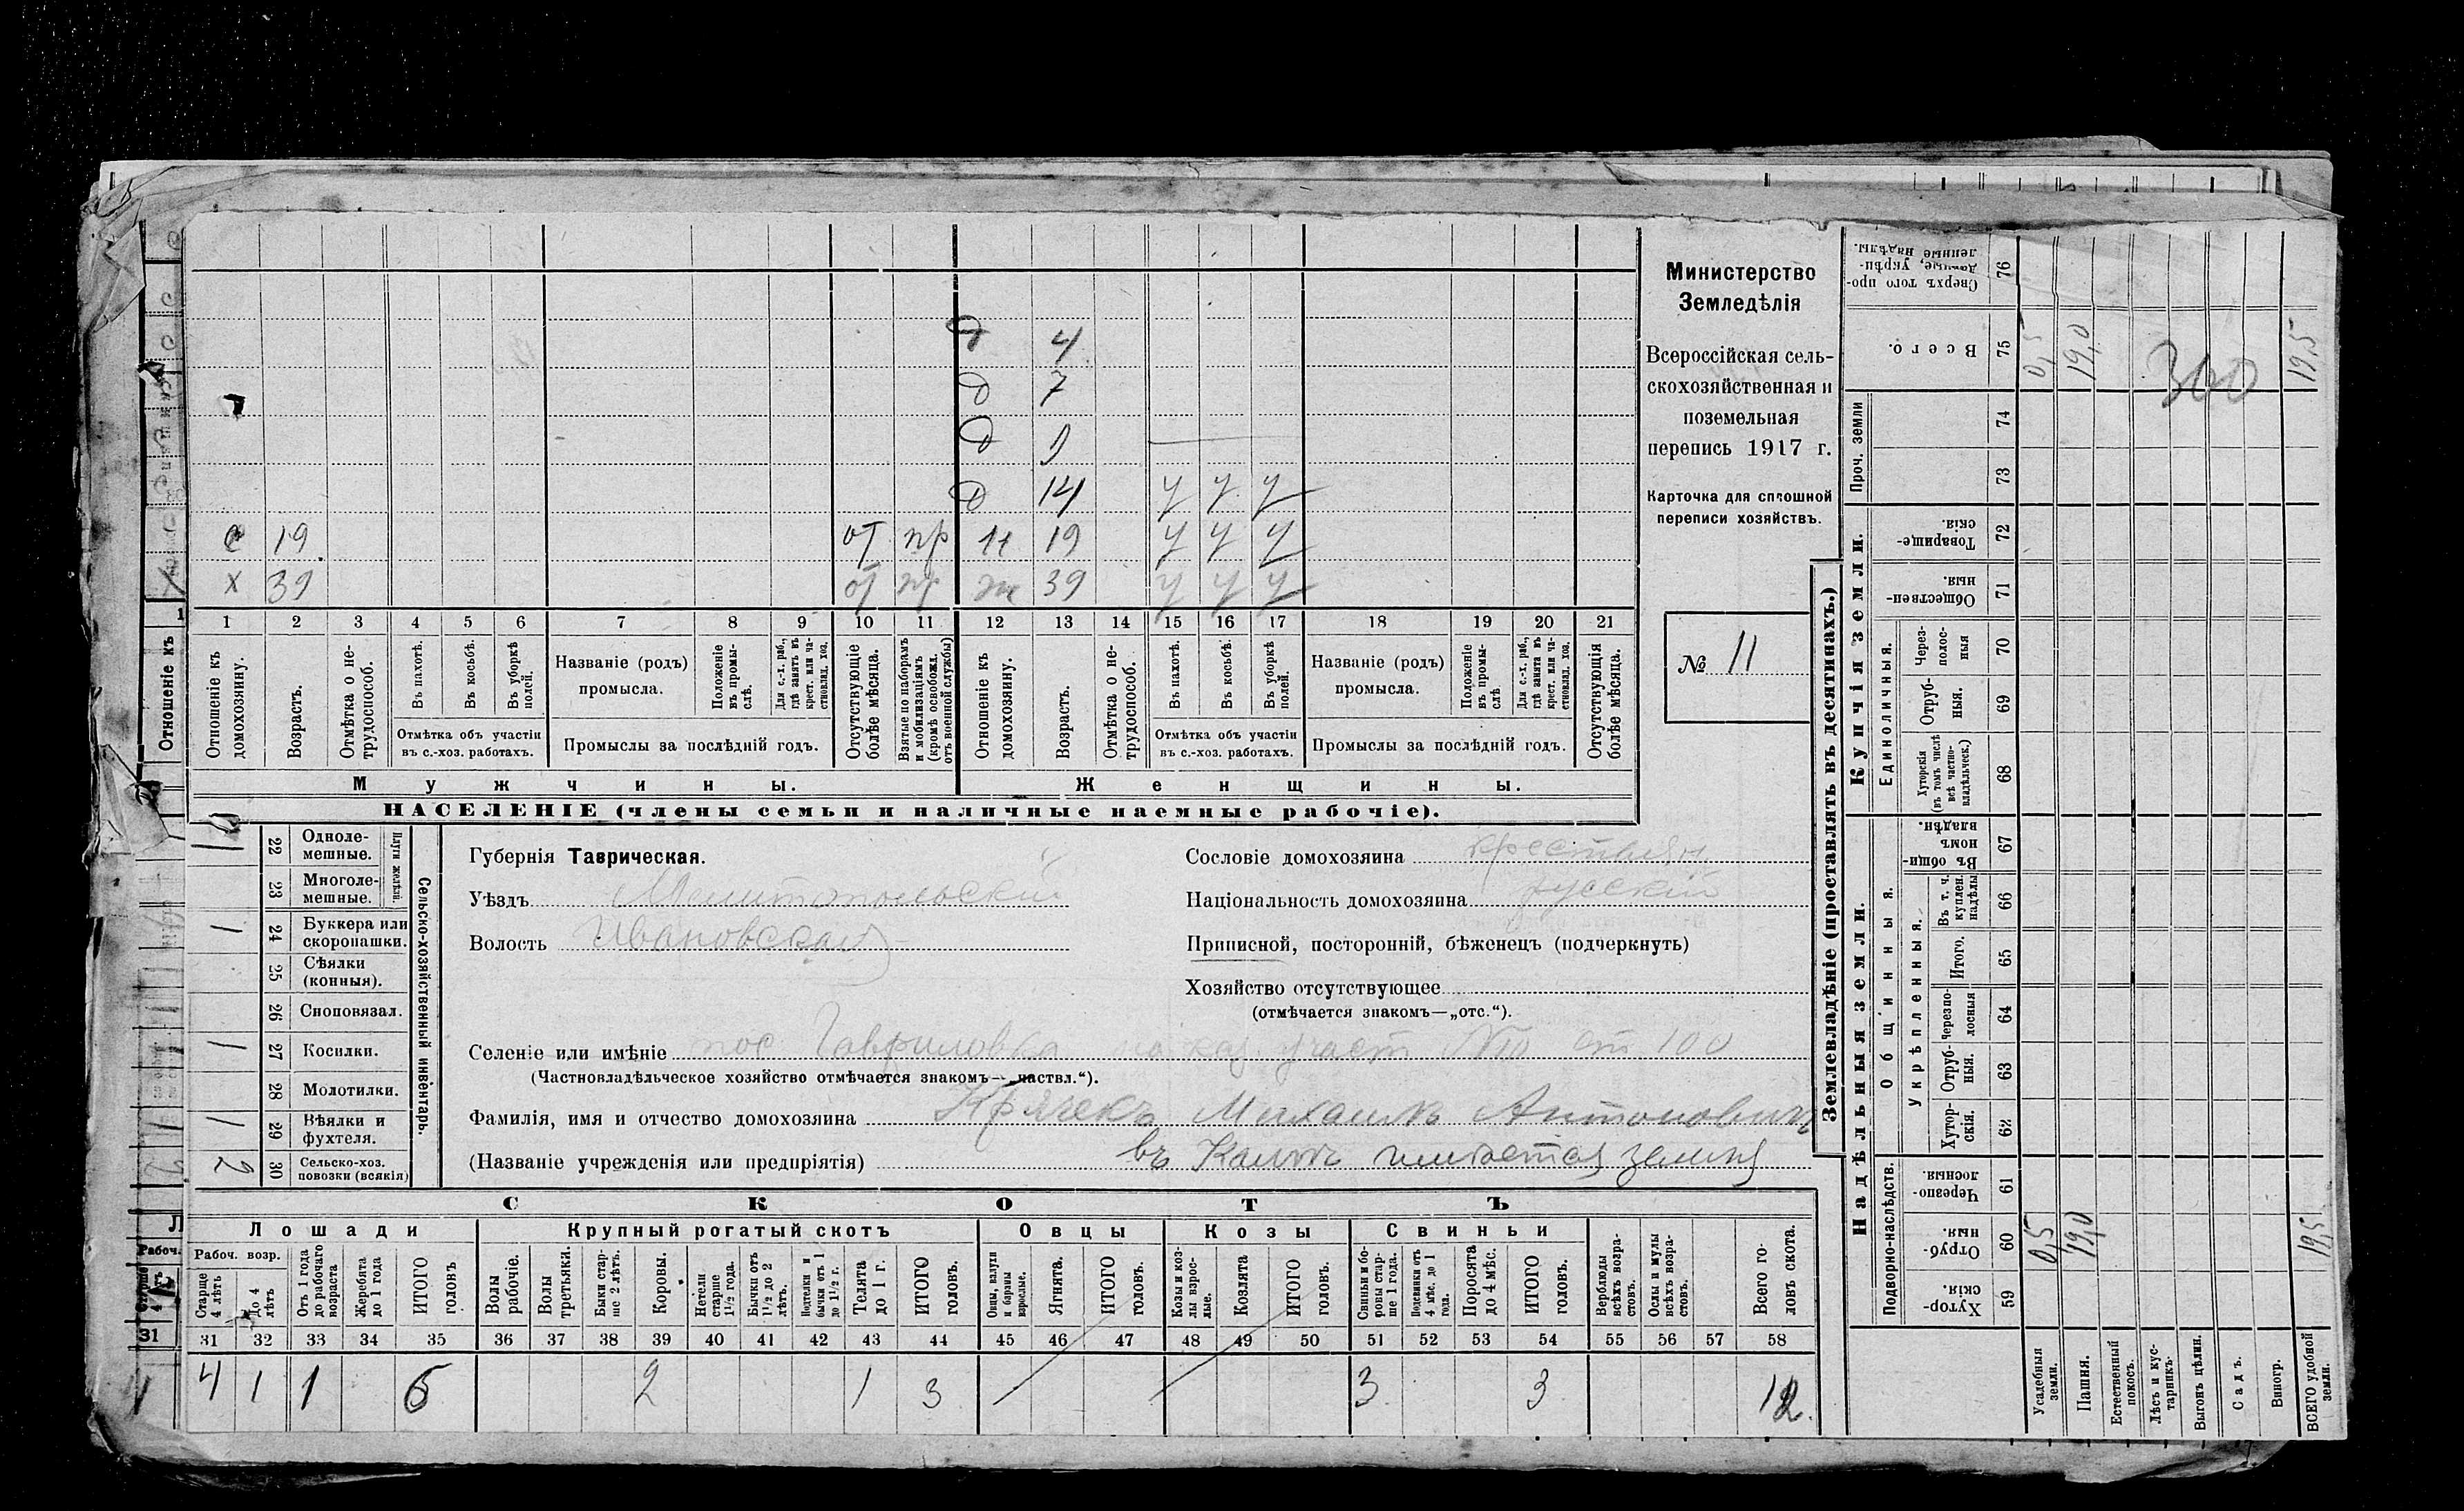 Министерство
Земледѣлія
Всероссійская сель-
скохозяйственная и
поземельная
перепись 1917 г.
Карточка для сплошной
переписи хозяйствъ.
№ 11
д 4
д 7
д 9
д 14 у у у
с 19 от пр н 19 у у у
х 39 от пр ж 39 у у у
1 2 3 4 5 6 7 8 9 10 11 12 13 14 15 16 17 18 19 20 21
Отношеніе къ домохозяину.
Возрастъ.
Отмѣтка о не-трудоспособ.
Въ пахотѣ.
Въ косьбѣ.
Въ уборкѣ полей.
Отмѣтка объ участіи
въ с.-хоз. работахъ.
Названіе (родъ)
промысла.
Положеніе въ промы-слѣ.
Для с.-х. раб., гдѣ занятъ въ крест. или ча-стновлад. хоз.
Промыслы за послѣдній годъ.
Отсутствующіе болѣе мѣсяца.
Взятые по наборамъ и мобилизаціямъ (кромѣ освобожд. отъ военной службы)
Отношеніе къ домохозяину.
Возрастъ.
Отмѣтка о не-трудоспособ.
Въ пахотѣ.
Въ косьбѣ.
Въ уборкѣ полей.
Отмѣтка объ участіи
въ с.-хоз. работахъ.
Названіе (родъ)
промысла.
Положеніе въ промы-слѣ
Для с.-х. раб., гдѣ занята въ крест. или ча-стновлад. хоз.
Промыслы за послѣдній годъ.
Отсутствующія болѣе мѣсяца.
Мужчины. Женщины.
НАСЕЛЕНІЕ (члены семьи и наличные наемные рабочіе).
Сельско-хозяйственный инвентарь.
Плуги желѣзн.
22 Одноле-мешные.
23 Многоле-мешные.
1 24 Буккера или скоропашки.
25 Сѣялки (конныя).
26 Сноповязал.
1 27 Косилки.
28 Молотилки.
1 29 Вѣялки и фухтеля.
2 30 Сельско-хоз. повозки (всякія)
Губернія Таврическая.
Уѣздъ Мелитопольскій
Волость Ивановская
Сословіе домохозяина крестьян.
Національность домохозяина русскій
Приписной, посторонній, бѣженецъ (подчеркнуть)
Хозяйство отсутствующее
(отмѣчается знакомъ—„отс.“).
Селеніе или имѣніе пос Гавриловка на каз. участ № от 100
(Частновладѣльческое хозяйство отмѣчается знакомъ—„частвл.“).
Фамилія, имя и отчество домохозяина Михаилъ Антоновичъ
(Названіе учрежденія или предпріятія) въ имѣется земля
СКОТЪ
Лошади Крупный рогатый скотъ Овцы Козы Свиньи
Рабоч. возр.
Старше 4 лѣтъ
До 4 лѣтъ
Отъ 1 года до рабочаго возраста
Жеребята до 1 года
ИТОГО головъ
Волы рабочіе.
Волы третьяки.
Быки стар-ше 2 лѣтъ.
Коровы.
Нетели старше 1½ года.
Бычки отъ 1½ до 2 лѣтъ.
Подтелки и бычки отъ 1 до 1½ г.
Телята до 1 г.
ИТОГО головъ.
Овцы, валухи и бараны взрослые.
Ягнята.
ИТОГО головъ.
Козы и коз-лы взрос-лые.
Козлята
ИТОГО головъ.
Свиньи и бо-ровы стар-ше 1 года.
Подсвинки отъ 4 мѣс. до 1 года.
Поросята до 4 мѣс.
ИТОГО головъ.
Верблюды всѣхъ возра-стовъ.
Ослы и мулы всѣхъ возра-стовъ.
Всего го-ловъ скота.
31 32 33 34 35 36 37 38 39 40 41 42 43 44 45 46 47 48 49 50 51 52 53 54 55 56 57 58
4 1 1 6 2 1 3 3 3 12.
Землевладѣніе (проставлять въ десятинахъ.)
Надѣльныя земли. Купчія земли. Проч. земли
Подворно-наслѣдств. Общинныя. Укрѣпленныя. Единоличныя.
Хутор-скія. 59
Отруб-ныя. 60 0,5 19,0 19,5
Черезпо-лосныя. 61
Хутор-скія. 62
Отруб-ныя. 63
Черезпо-лосныя 64
Итого. 65
Въ т. ч. куплен. надѣлы 66
Въ общи-номъ владѣн. 67
Хуторскія (въ томъ числѣ всѣ частно-владѣльческ.) 68
Отруб-ныя. 69
Через-полос-ныя 70
Обществен-ныя. 71
Товарище-скія. 72
73
74
Всего. 75 0,5 19,0 300 19,5
Сверхъ того про-данные, укрѣп-ленные надѣлы. 76
Усадебныя земли.
Пашня.
Естественный покосъ.
Лѣсъ и кус-тарникъ.
Выгонъ цѣлин.
Садъ.
Виногр.
ВСЕГО удобной земли.
Отношеніе къ
1
Рабоч.
31